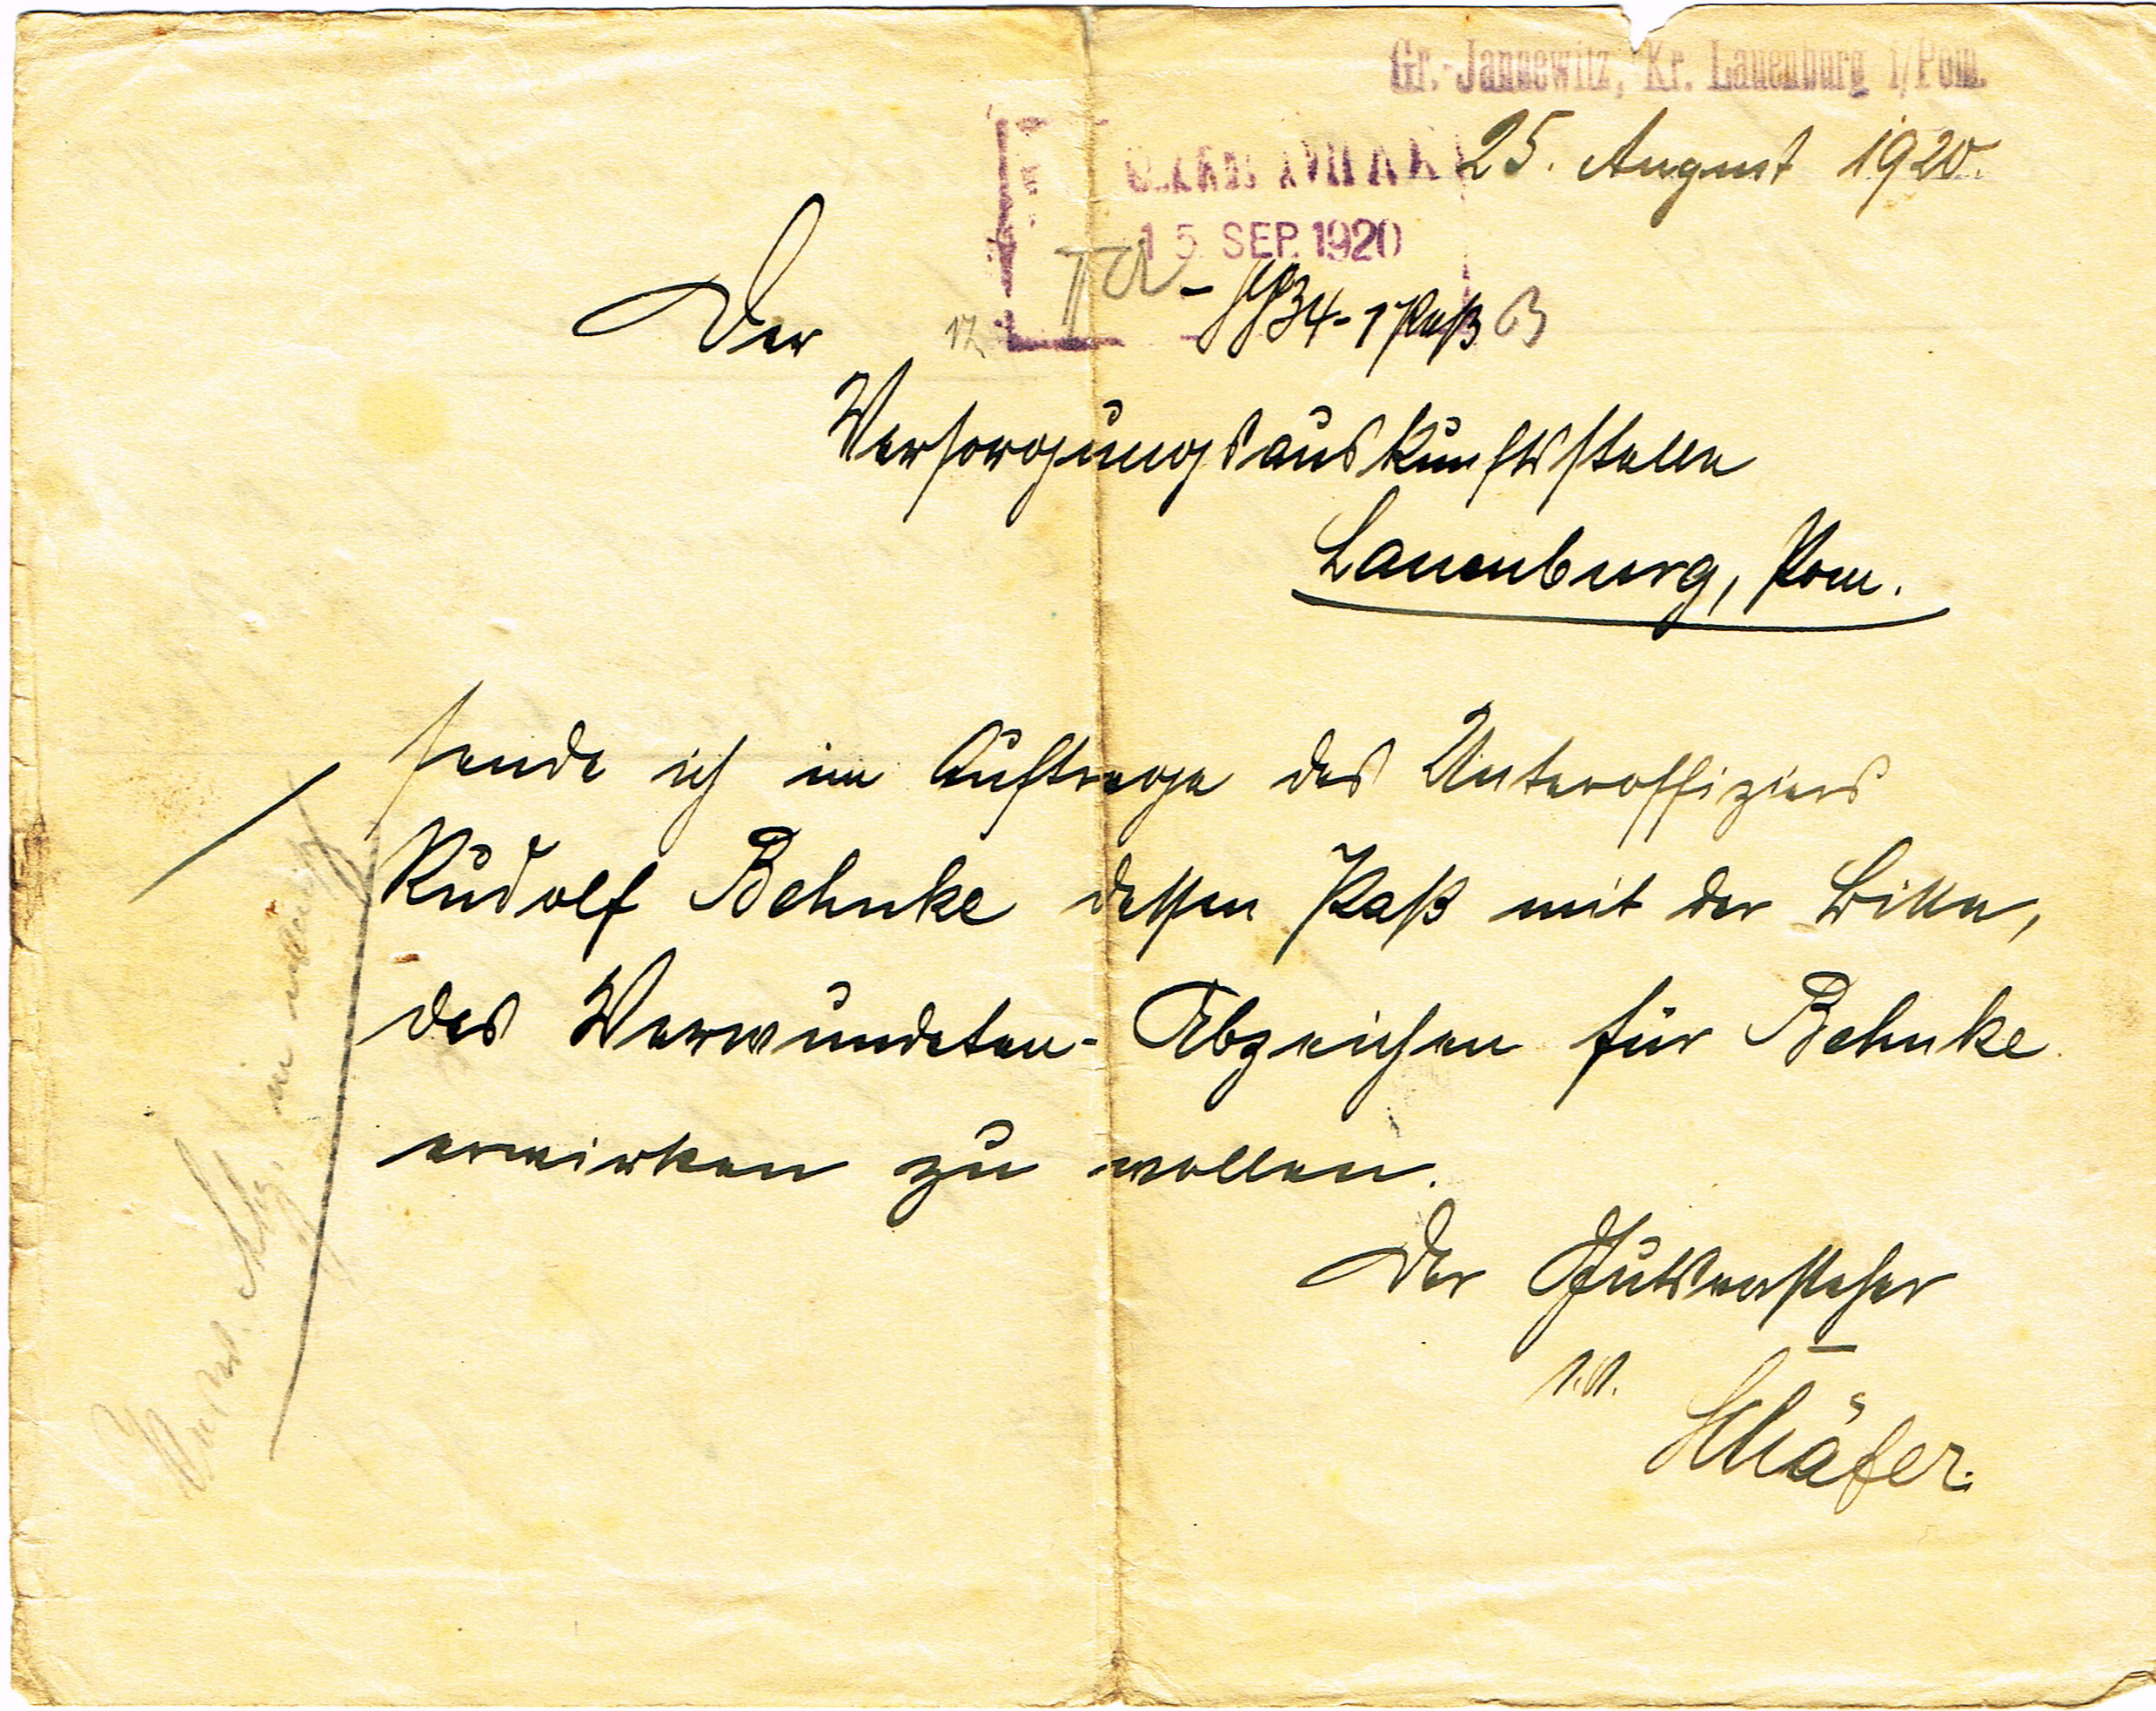 Gr.-Jannewitz, Kr. Lauenburg i/Pom.
25. August 1920.
15. SEP. 1920
IIa - 1 Paß
Der
Versorgungsauskunftsstelle
Lauenburg, Pom.
sende ich im Auftrage des Unteroffiziers
Rudolf Behnke dessen Paß mit der Bitte,
das Verwundeten-Abzeichen für Behnke
erwirken zu wollen.
Der Gutsvorsteher
I.V.
Schäfer.